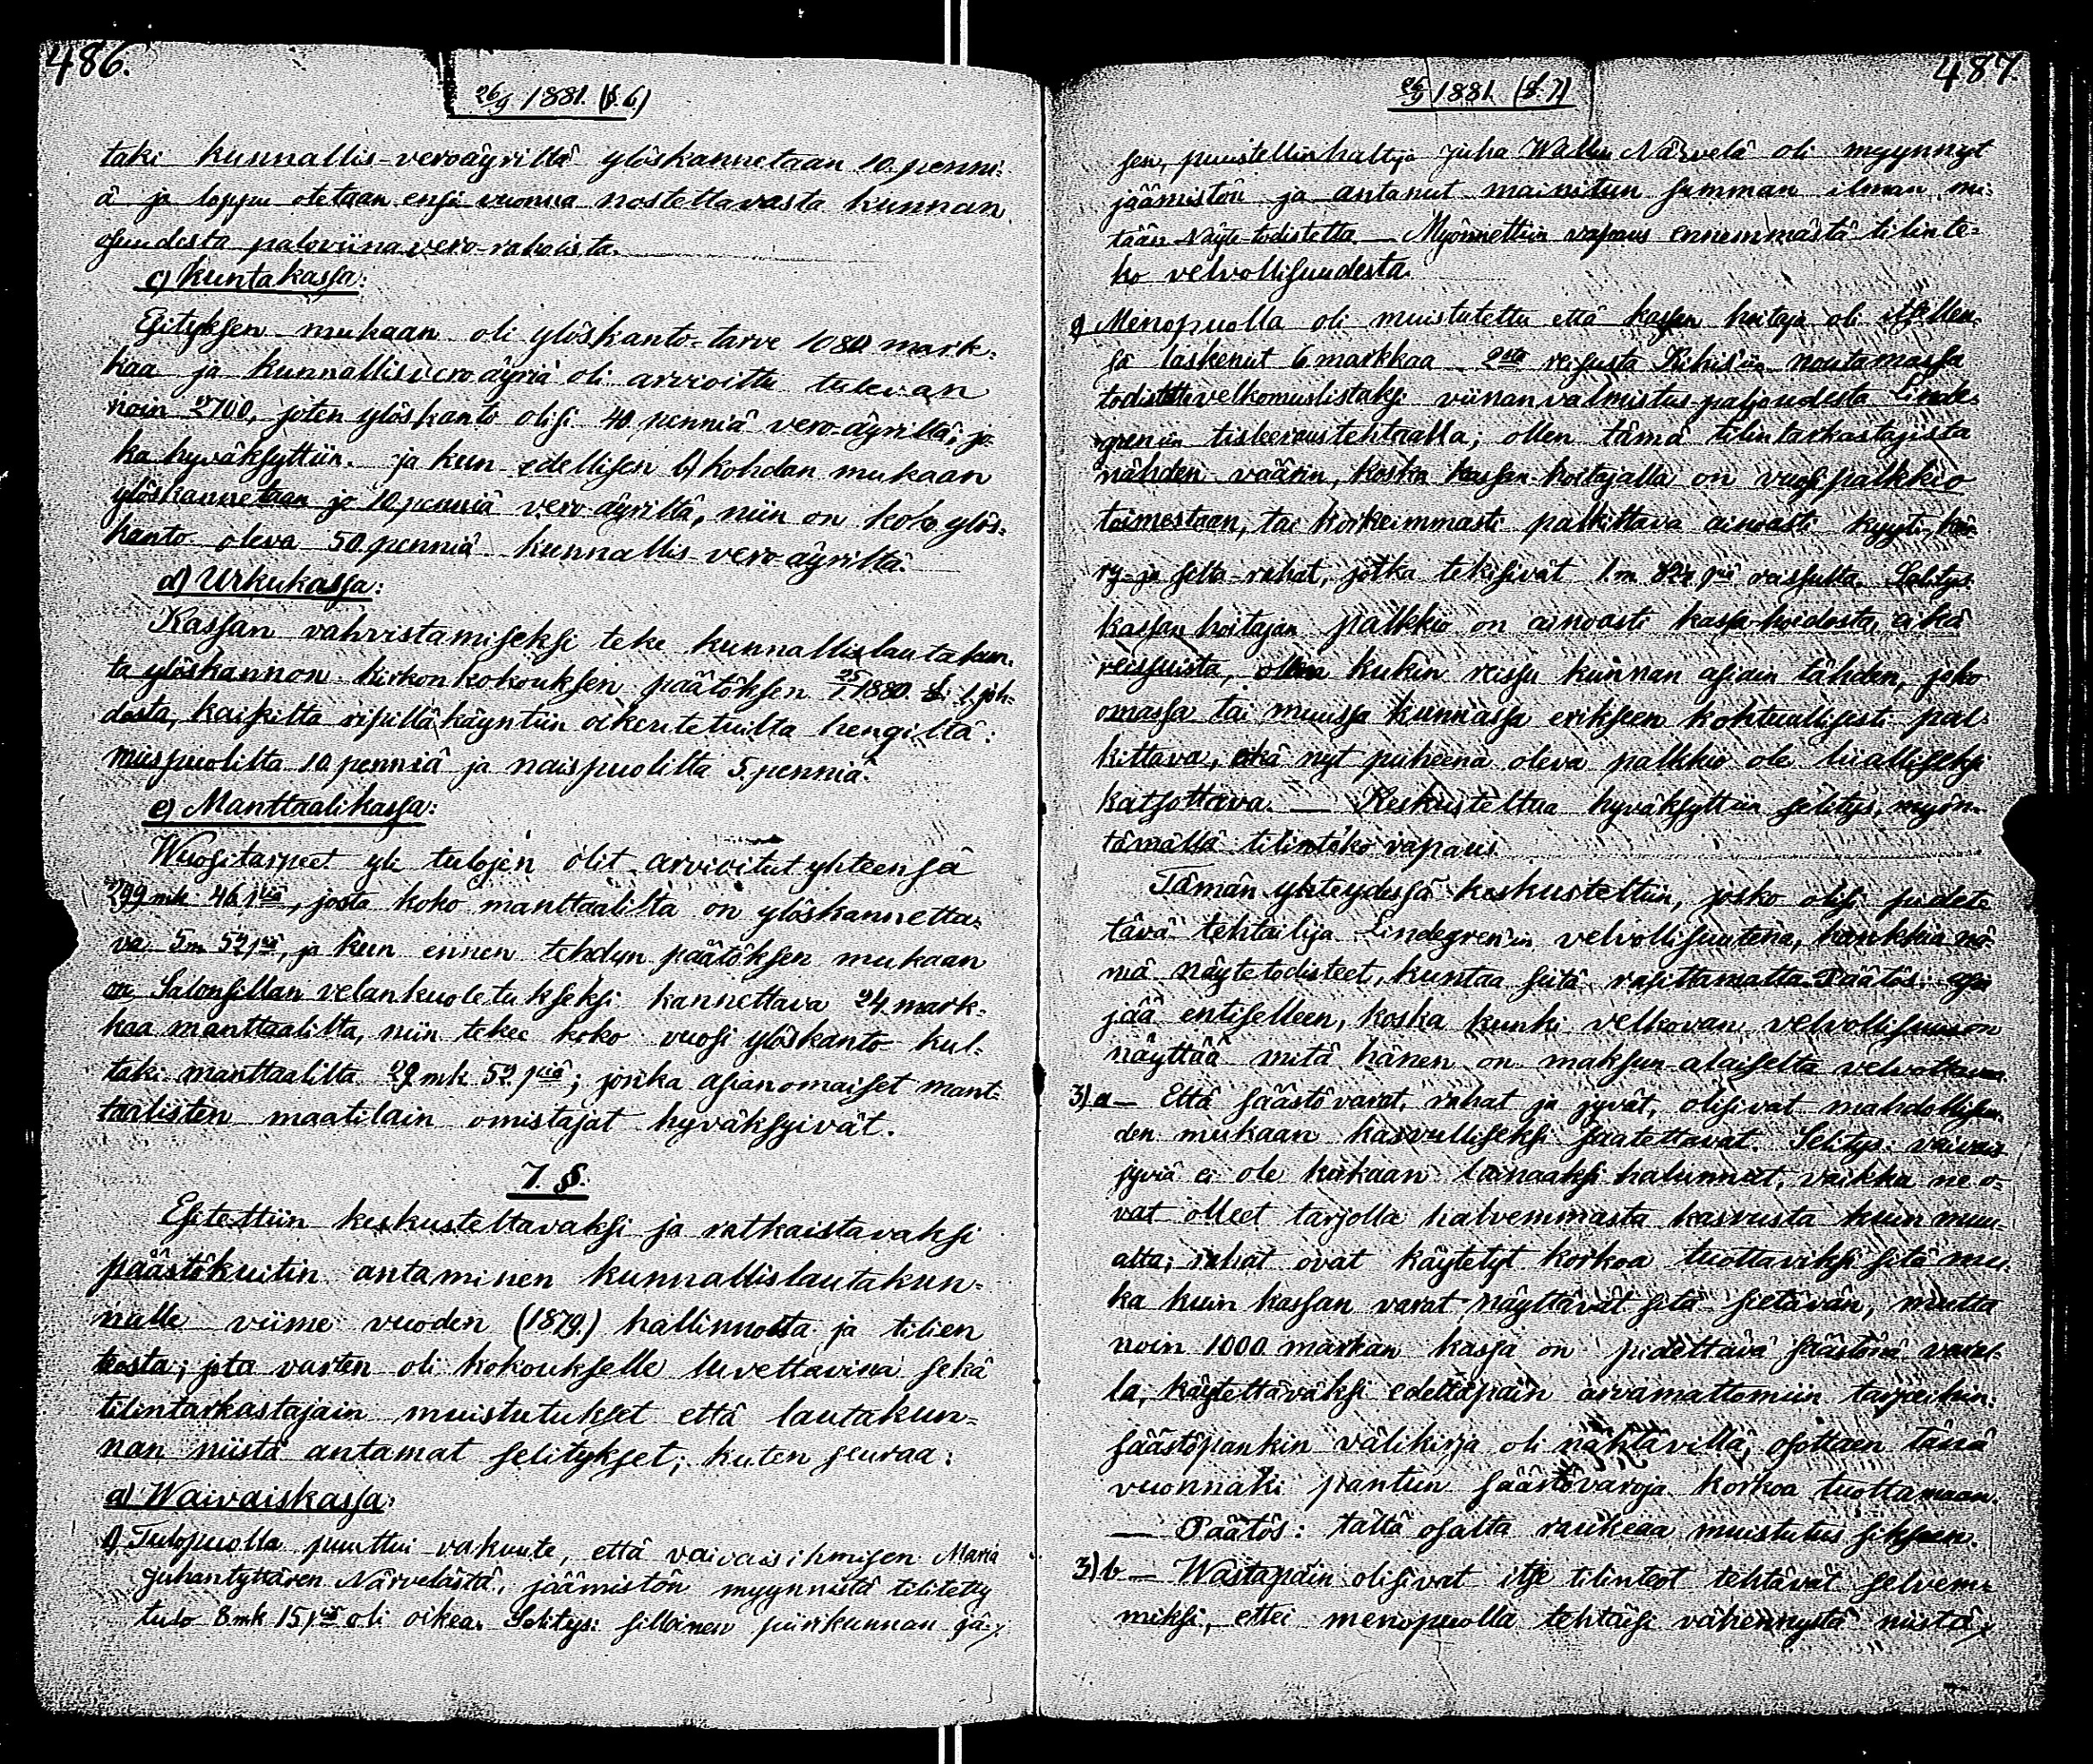 486.
26/9 1881. (§.6)
taki kunnallis-veroäyriltä ylöskannetaan 10. penni-
ä ja loppu otetaan ensi vuonna nostettavasta kunnan
osuudesta paloviina vero-rahoista.
c) Kuntakassa:
Esityksen mukaan oli ylöskanto-tarve 1080 mark-
kaa ja kunnallisveroäyriä oli arvioittu tulevan
noin 2700, joten ylöskanto olisi 40 penniä vero-äyriltä; jo-
ka hyväksyttiin. ja kun edellisen b) kohdan mukaan
ylöskannetaan jo 10 penniä vero äyriltä, niin on koko ylös-
kanto oleva 50 penniä kunnallis vero äyriltä.
d) Urkukassa:
Kassan vahvistamiseksi teke kunnallislautakun-
ta ylöskannon kirkonkokouksen päätöksen 1880 §. 1. joh-
dosta, kaikilta ripillä käyntiin oikeutetuilta hengiltä:
miespuolilta 10 penniä ja naispuolilta 5 penniä.
e) Manttaalikassa:
Wuositarpeet yli tulojen olit arvioitut yhteensä
299 mk 46 piä, josta koko manttaalilta on ylöskannetta-
va 5 m 52 piä, ja kun ennen tehdyn päätöksen mukaan
on Salonsillan velankuoletukseksi kannettava 24 mark-
kaa manttaalilta, niin tekee koko vuosi ylöskanto kul-
taki manttaalilta 29 mk 52 piä; jonka asianomaiset mant-
taalisten maatilain omistajat hyväksyivät.
7. §.
Esitettiin keskusteltavaksi ja ratkaistavaksi
päästökuitin antaminen kunnallislautakun-
nalle viime vuoden (1879.) hallinnosta ja tilien
teosta; jota varten oli kokoukselle luvettavina sekä
tilintarkastajain muistutukset että lautakun-
nan niistä antamat selitykset; kuten seuraa:
a) Waivaiskassa:
1) Tulopuolla puuttui vakuute, että vaivais ihmisen Maria
Juhantyttären Närvelästä, jäämistön myynnistä tilitetty
tulo 8 mk 15 piä oli oikea. Selitys: silloinen piirikunnan jä-
487.
26/9 1881. (§.7)
sen, puustellin haltija Juha Närvelä oli myynnyt
jäämistön ja antanut mainitun summan ilman mi-
tään näyte-todistetta. — Myönnettiin vapaus ennemmästä tilinte-
ko velvollisuudesta.
Menopuolla oli muistutettu että kassan hoitaja oli itsellen-
sä laskenut 6 markkaa 2sta reisusta noutamassa
viinanvalmistus paljoudesta Linde-
grenin tisleeraustehtaalla; ollen tämä tilintarkastajista
nähden väärin, koska kassan-hoitajalla on vuosipalkkio
toimestaan, tai korkeimmasti palkittava ainoasti kyyti, kär-
ry- ja silta-rahat, jotka tekisivät 1. m 82 piä reissulta. Selitys:
kassan hoitajan palkkio on ainoasti kassa-hoidosta, eikä
reissuista, ollen kukin reissu kunnan asiain tähden, joko
omassa tai muussa kunnassa erikseen kohtuullisesti pal-
kittava, eikä nyt puheena oleva palkkio ole liialliseksi
katsottava. — Keskusteltua hyväksyttiin selitys, myön-
tämällä tilinteko vapaus.
Tämän yhteydessä keskusteltiin, josko olisi pidet-
tävä tehtailija Lindegren'in velvollisuutena, hankkia nä-
mä näytetodisteet, kuntaa siitä rasittamatta. Päätös: asia
jää entiselleen, koska kunki velkovan velvollisuus on
näyttää mitä hänen on maksun-alaiselta velvottava.
3) a — Että säästövarat, rahat ja jyvät, olisivat mahdollisuu-
den mukaan kasvulliseksi saatettavat. Selitys: vaivais
jyviä ei ole kukaan lainaaksi halunnut, vaikka ne o-
vat olleet tarjolla halvemmasta kasvusta kuin muu-
alta; rahat ovat käytetyt korkoa tuottaviksi sitä mu-
ka kuin kassan varat näyttävät sitä sietävän, mutta
noin 1000 markan kassa on pidettävä säästönä varal-
la, käytettäväksi edeltäpäin arvamattomiin tarpeihin.
säästöpankin välikirja oli nähtävillä, osottaen tänä
vuonnaki pantun säästövaroja korkoa tuottamaan.
— Päätös: tältä osalta raukeaa muistutus siksensä.
3) b — Wastapäin olisivat itse tilinteot tehtävät selvem-
miksi, ettei menopuolla tehtäisi vähennystä niistä